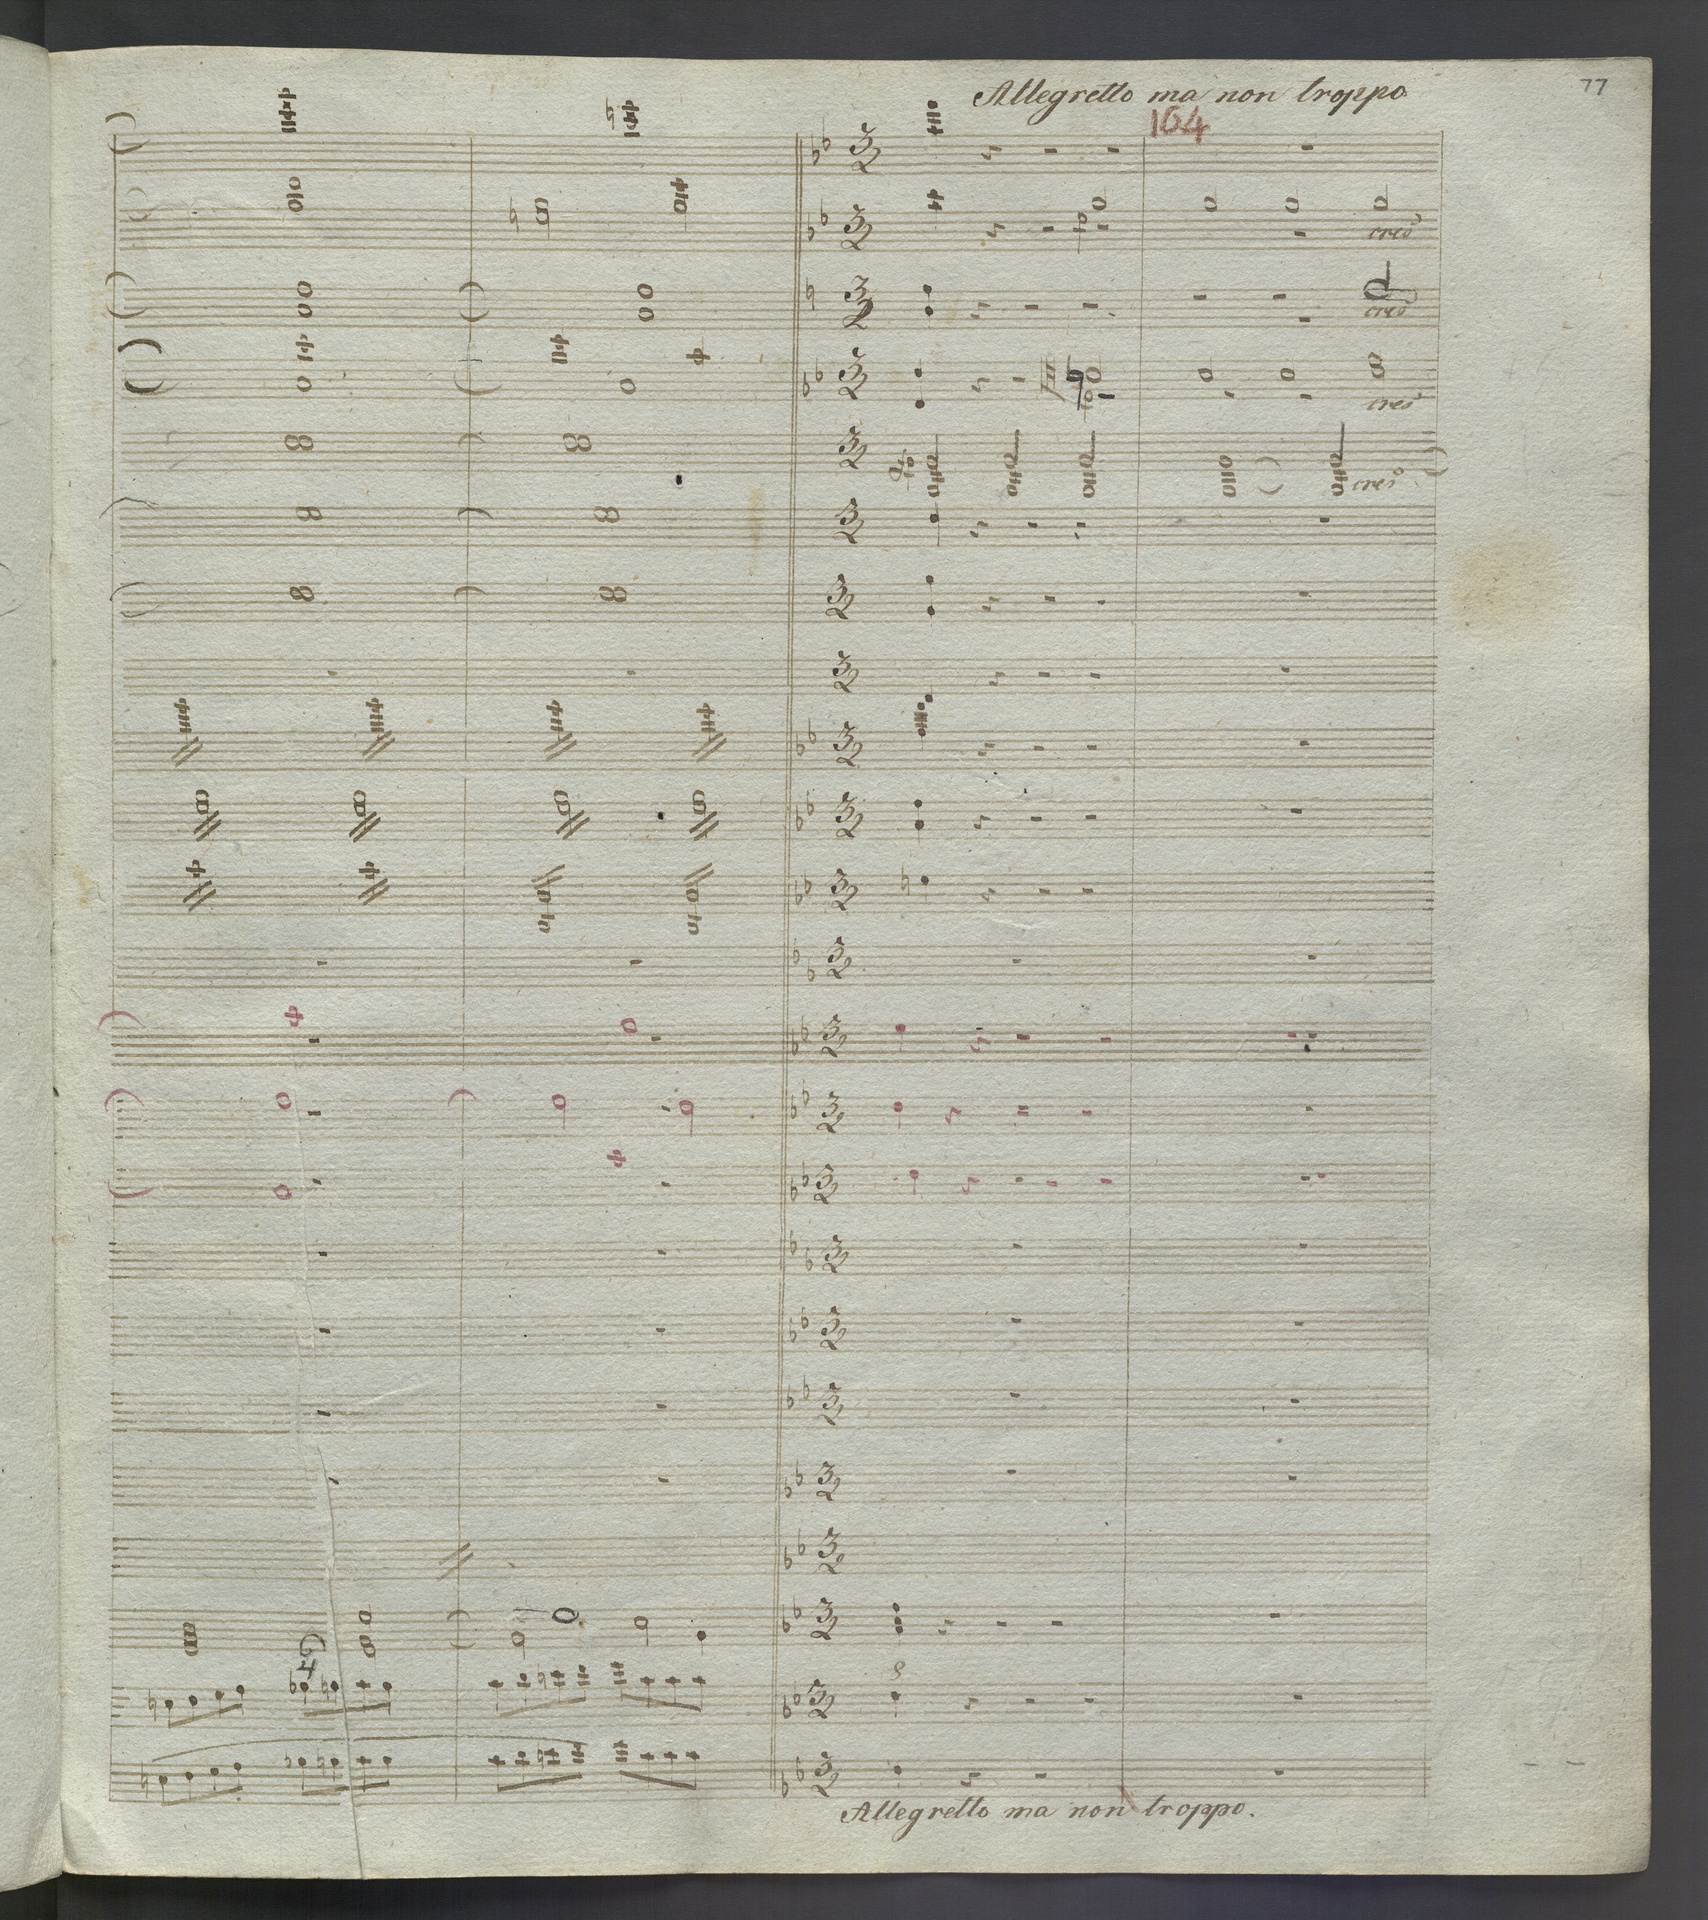 77
Allegretto ma non troppo
104
cres
cres
cres
cres
Allegretto ma non troppo.